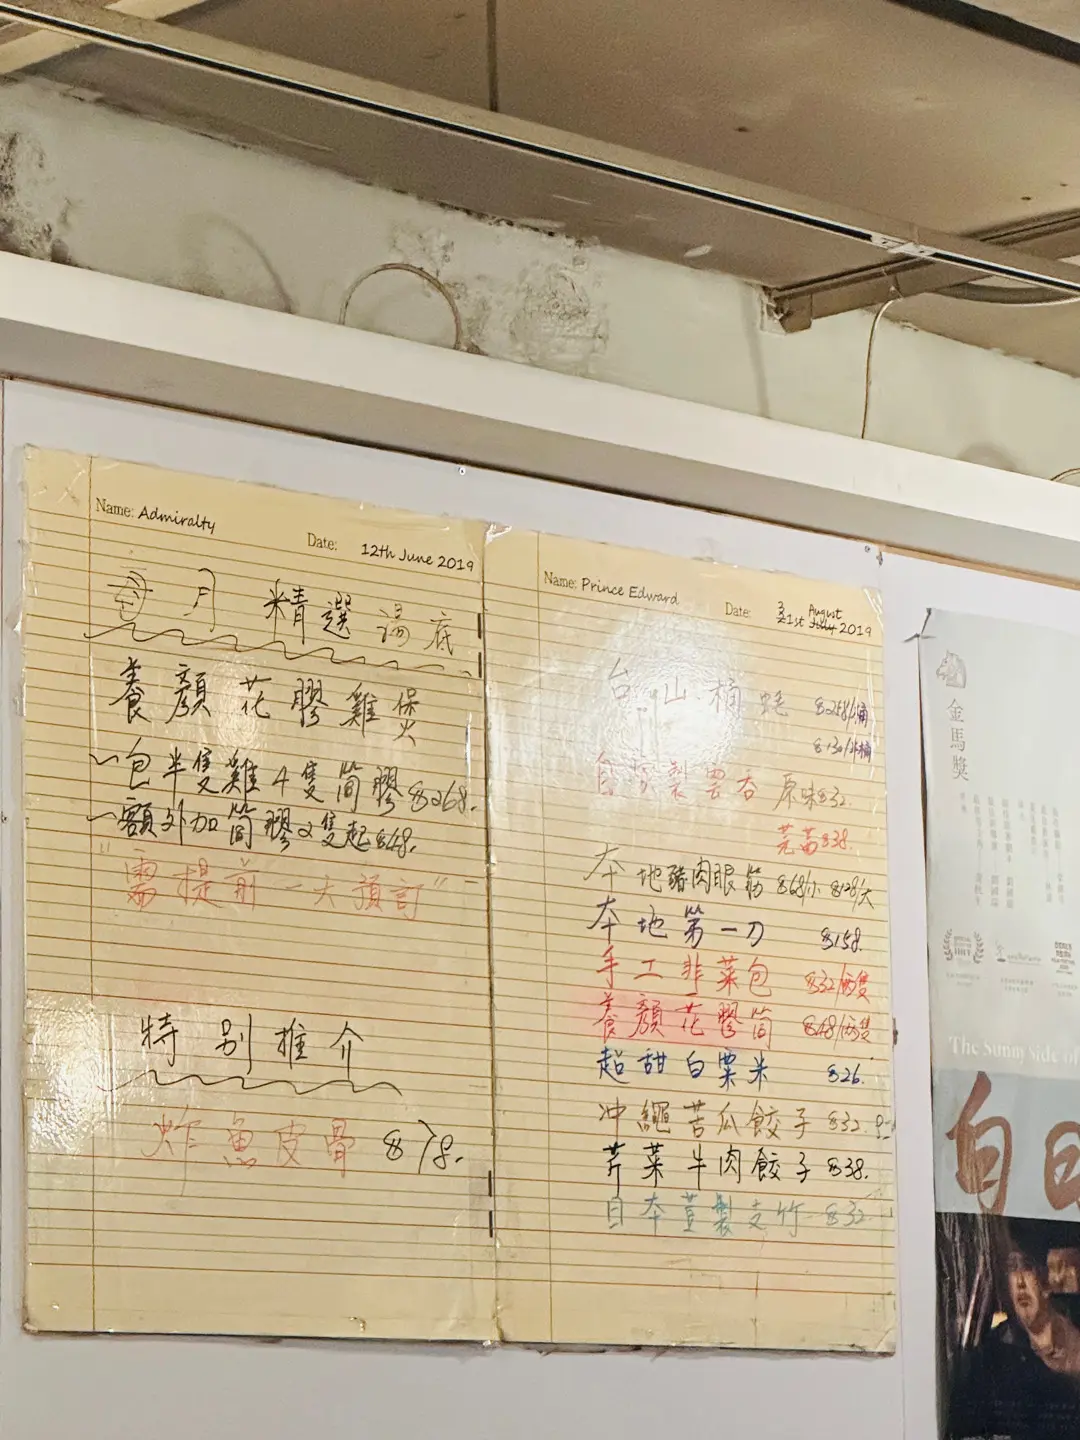 Name: Admiralty
Date: 12th June 2019
每月 精選湯底
養顏花膠雞煲
~包半隻雞4隻筒膠$268.
~額外加筒膠2隻起$48.
"需提前一天預訂"
特別推介
炸魚皮骨 $78.
Name: Prince Edward
Date: 31st August July 2019
台山桶蠔 $258/桶
$130/半桶
自家製雲吞 原味$32.
芫茜$38.
本地豬肉眼筋 $68/小 $128/大
本地第一刀 $158.
手工韭菜包 $32/両隻
養顏花膠筒 $48/両隻
超甜白粟米 $26.
沖繩苦瓜餃子 $32.
芹菜牛肉餃子 $38.
日本荳製支竹 $32.
金馬獎
The Sunny side of
白日